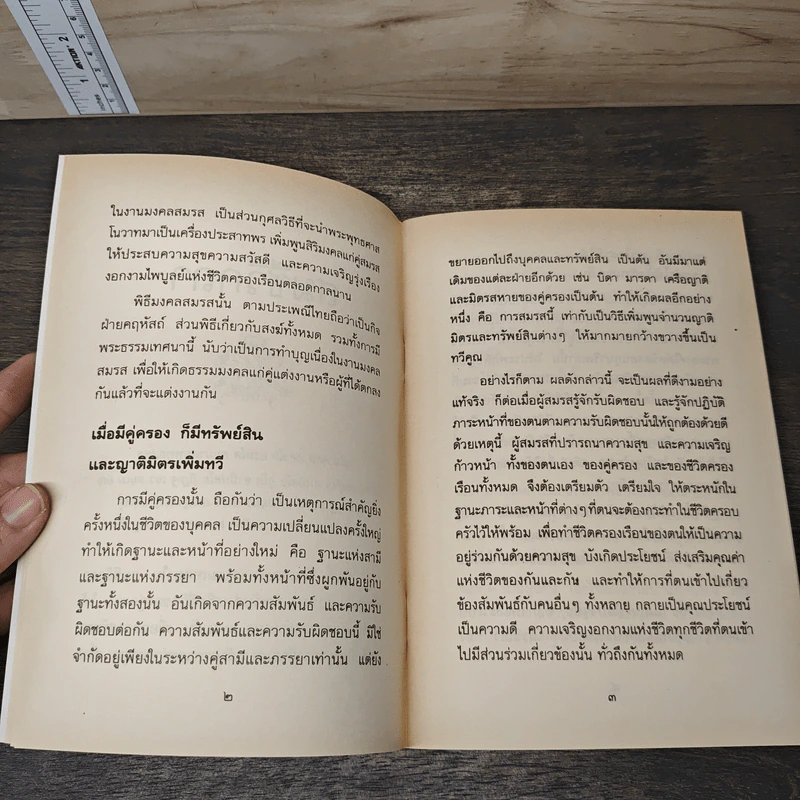 ในงานมงคลสมรส เป็นส่วนกุศลวิธีที่จะนำพระพุทธศาส
โนวาทมาเป็นเครื่องประสาทพร เพิ่มพูนสิริมงคลแก่คู่สมรส
ให้ประสบความสุขความสวัสดี และความเจริญรุ่งเรือง
งอกงามไพบูลย์แห่งชีวิตครองเรือนตลอดกาลนาน
พิธีมงคลสมรสนั้น ตามประเพณีไทยถือว่าเป็นกิจ
ฝ่ายคฤหัสถ์ ส่วนพิธีเกี่ยวกับสงฆ์ทั้งหมด รวมทั้งการมี
พระธรรมเทศนานี้ นับว่าเป็นการทำบุญเนื่องในงานมงคล
สมรส เพื่อให้เกิดธรรมมงคลแก่คู่แต่งงานหรือผู้ที่ได้ตกลง
กันแล้วที่จะแต่งงานกัน
เมื่อมีคู่ครอง ก็มีทรัพย์สิน
และญาติมิตรเพิ่มทวี
การมีคู่ครองนั้น ถือกันว่า เป็นเหตุการณ์สำคัญยิ่ง
ครั้งหนึ่งในชีวิตของบุคคล เป็นความเปลี่ยนแปลงครั้งใหญ่
ทำให้เกิดฐานะและหน้าที่อย่างใหม่ คือ ฐานะแห่งสามี
และฐานะแห่งภรรยา พร้อมทั้งหน้าที่ซึ่งผูกพันอยู่กับ
ฐานะทั้งสองนั้น อันเกิดจากความสัมพันธ์ และความรับ
ผิดชอบต่อกัน ความสัมพันธ์และความรับผิดชอบนี้ มิใช่
จำกัดอยู่เพียงในระหว่างคู่สามีและภรรยาเท่านั้น แต่ยัง
๒
ขยายออกไปถึงบุคคลและทรัพย์สิน เป็นต้น อันมีมาแต่
เดิมของแต่ละฝ่ายอีกด้วย เช่น บิดา มารดา เครือญาติ
และมิตรสหายของคู่ครองเป็นต้น ทำให้เกิดผลอีกอย่าง
หนึ่ง คือ การสมรสนี้ เท่ากับเป็นวิธีเพิ่มพูนจำนวนญาติ
มิตรและทรัพย์สินต่างๆ ให้มากมายกว้างขวางขึ้นเป็น
ทวีคูณ
อย่างไรก็ตาม ผลดังกล่าวนี้ จะเป็นผลที่ดีงามอย่าง
แท้จริง ก็ต่อเมื่อผู้สมรสรู้จักรับผิดชอบ และรู้จักปฏิบัติ
ภาระหน้าที่ของตนตามความรับผิดชอบนั้นให้ถูกต้องด้วยดี
ด้วยเหตุนี้ ผู้สมรสที่ปรารถนาความสุข และความเจริญ
ก้าวหน้า ทั้งของตนเอง ของคู่ครอง และของชีวิตครอง
เรือนทั้งหมด จึงต้องเตรียมตัว เตรียมใจ ให้ตระหนักใน
ฐานะภาระและหน้าที่ต่างๆที่ตนจะต้องกระทำในชีวิตครอบ
ครัวไว้ให้พร้อม เพื่อทำชีวิตครองเรือนของตนให้เป็นความ
อยู่ร่วมกันด้วยความสุข บังเกิดประโยชน์ ส่งเสริมคุณค่า
แห่งชีวิตของกันและกัน และทำให้การที่ตนเข้าไปเกี่ยว
ข้องสัมพันธ์กับคนอื่นๆ ทั้งหลาย กลายเป็นคุณประโยชน์
เป็นความดี ความเจริญงอกงามแห่งชีวิตทุกชีวิตที่ตนเข้า
ไปมีส่วนร่วมเกี่ยวข้องนั้น ทั่วถึงกันทั้งหมด
๓